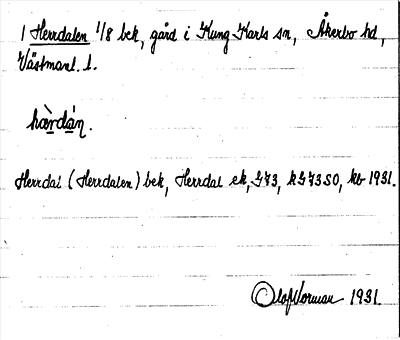 1 Herrdalen 1/8 bek, gård i Kung Karls sn, Åkerbo hd,
Västmanl. l.
hàrdàn.
Herrdal (Herrdalen) bek, Herrdal ek, G73, kG73SO, kb 1931.
Olof Norman 1931.